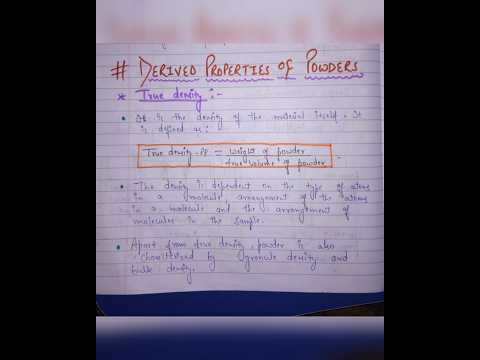 # DERIVED PROPERTIES OF POWDERS
* True density :-
• It is the density of the material itself. It
is defined as :
True density = weight of powder
true volume of powder
• The density is dependent on the type of atoms
in a molecule, arrangement of the atoms
in a molecule and the arrangement of
molecules in the sample.
• Apart from true density powder is also
characterized by granule density and
bulk density.